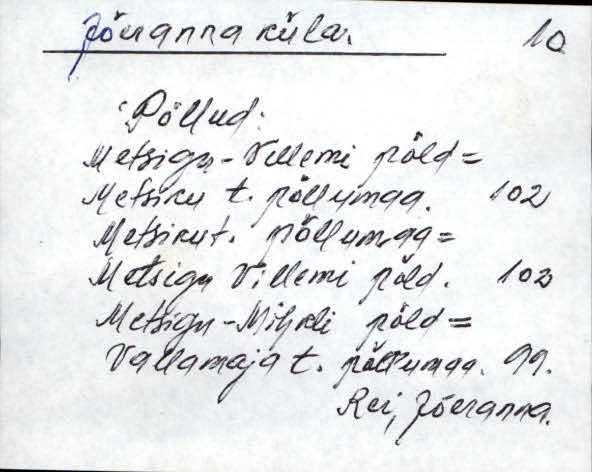 Jõeranna küla. 10
Põllud:
Metsigu-Villemi põld =
Metsiku t. põllumaa. 102
Metsiku t. põllumaa =
Metsigu Villemi põld. 102
Metsigu-Mihkli põld =
Vallamaja t. põllumaa. 99.
Rei, Jõeranna.